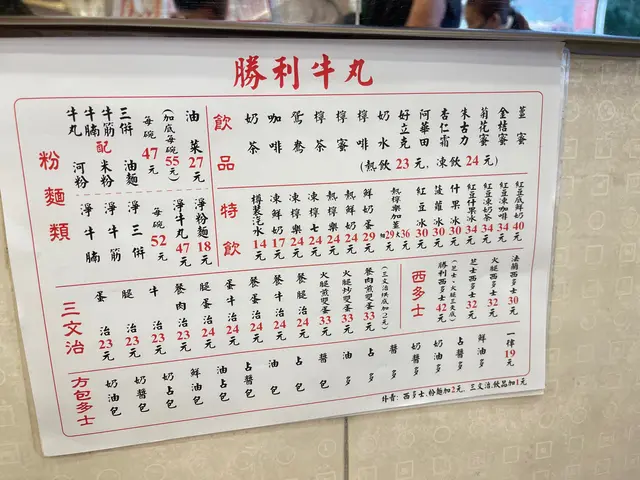 勝利牛丸
粉麵類
牛丸 河粉
牛腩 牛筋 配 米粉
三併 油麵
每碗47元
(加底每碗55元)
油菜27元
淨牛腩
淨牛筋
淨三併
每碗52元
淨牛丸47元
淨粉麵18元
飲品
奶茶
咖啡
鴛鴦
檸茶
檸蜜
檸啡
奶水
好立克
阿華田
杏仁霜
朱古力
菊花蜜
金桔蜜
薑蜜
(熱飲23元,凍飲24元)
特飲
樽裝汽水14元
凍鮮奶17元
凍檸樂24元
凍檸七24元
熱檸樂24元
熱鮮奶24元
鮮奶蛋29元
熱檸樂加薑29元
紅豆冰30元
菠蘿冰30元
什果冰30元
紅豆什果冰34元
紅豆凍奶茶34元
紅豆凍咖啡34元
紅豆底鮮奶40元
三文治
蛋治23元
腿治23元
牛治23元
餐肉治23元
腿蛋治24元
餐蛋治24元
蛋牛治24元
餐腿治24元
火腿煎雙蛋33元
火腿炒雙蛋33元
餐肉煎雙蛋33元
(三文治烘底加2元)
西多士
勝利西多士42元
(芝士、火腿三夾底)
芝士西多士32元
火腿西多士32元
法蘭西多士30元
方包多士
奶油包
奶醬包
奶占包
鮮油包
占醬包
油占包
奶包
醬包
油多
占多
醬多
奶多
奶醬多
奶油多
占醬多
鮮油多
一律19元
外賣:西多士、粉麵加2元,三文治、飲品加1元